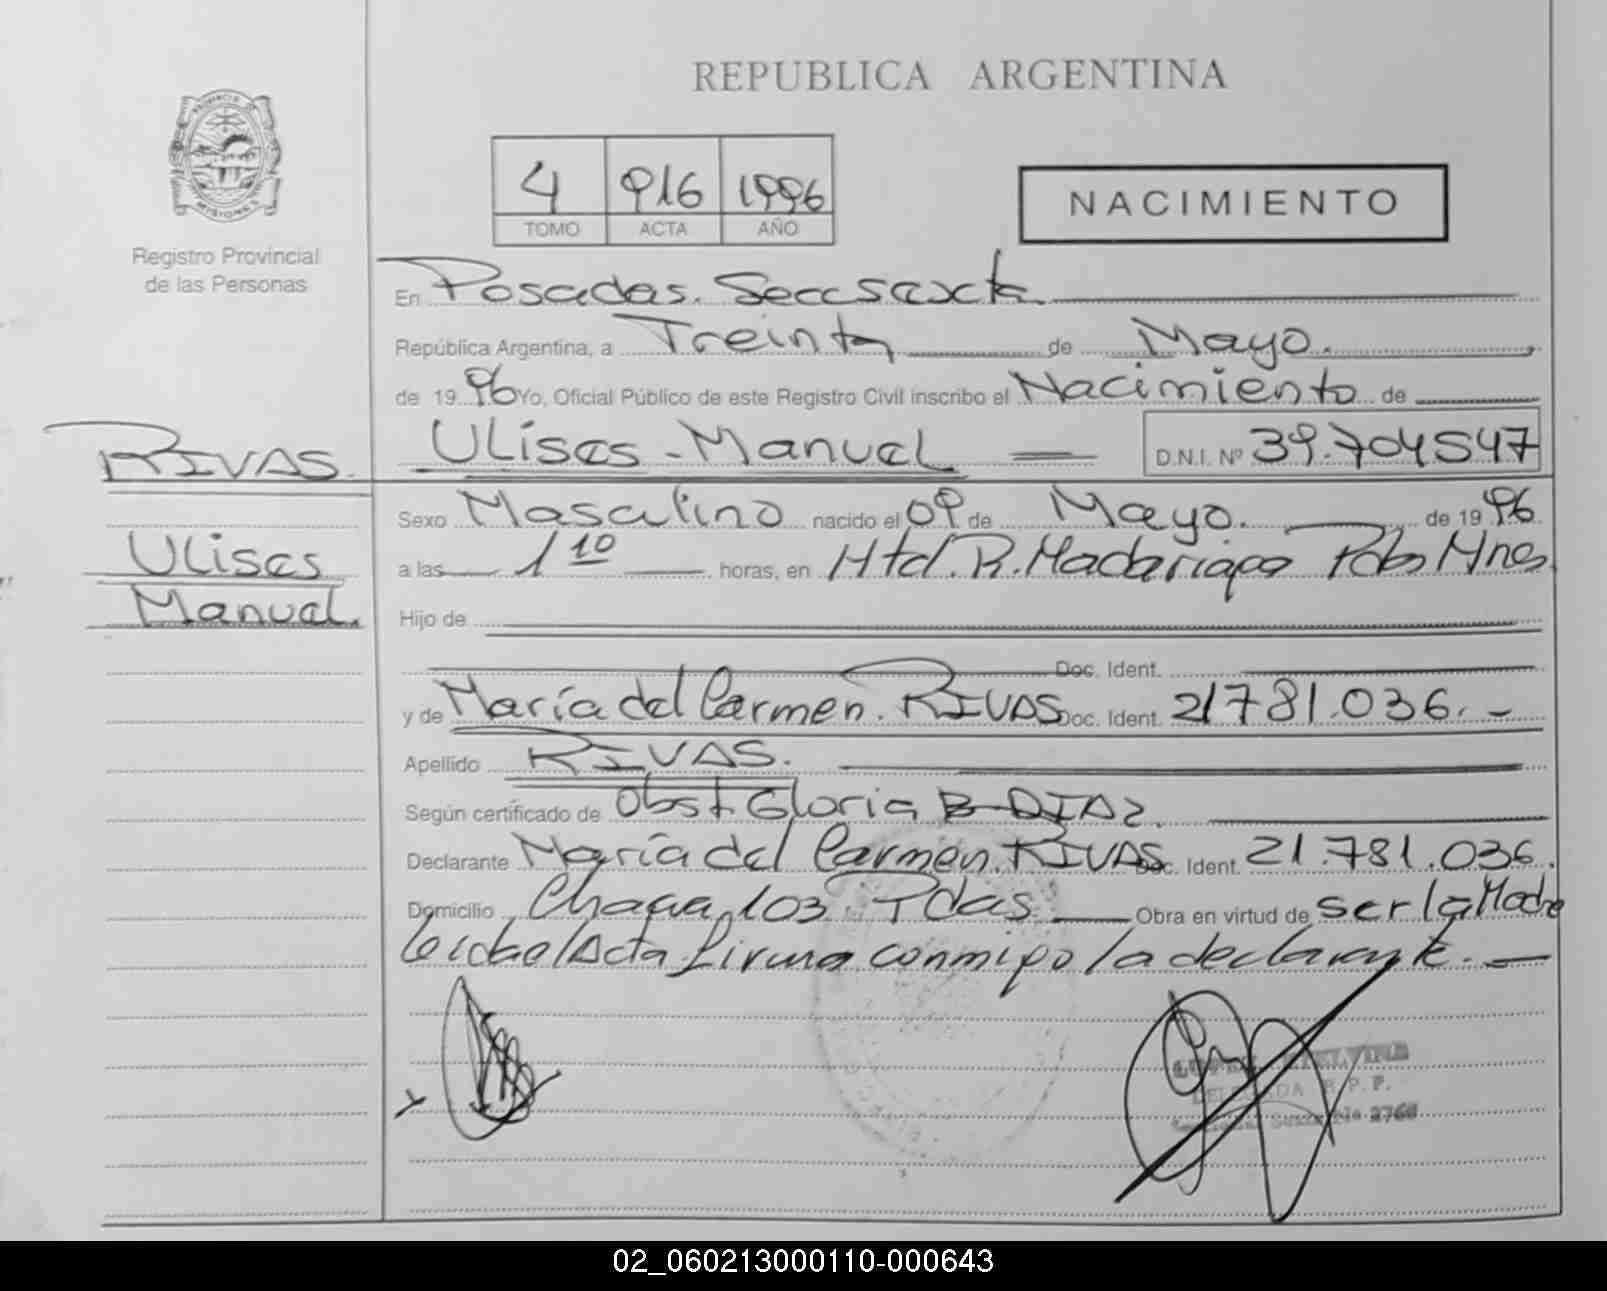 REPUBLICA ARGENTINA
PROVINCIA DE
MISIONES
Registro Provincial
de las Personas
4 916 1996
TOMO ACTA AÑO
NACIMIENTO
En Posadas. Secc sexta
República Argentina, a Treinta de Mayo.
de 19 96 Yo, Oficial Público de este Registro Civil inscribo el Nacimiento de
RIVAS.
Ulises
Manuel.
ULises - Manuel D.N.I. Nº 39.704547
Sexo Masculino nacido el 09 de Mayo. de 19 96
a las 1 10 horas, en Htal. R. Madariaga Pdas Mnes
Hijo de
Doc. Ident.
y de María del Carmen. RIVAS Doc. Ident. 21781.036.-
Apellido RIVAS.
Según certificado de Obst. Gloria B DIAZ.
Declarante María del Carmen RIVAS Doc. Ident. 21.781.036.
Domicilio Chacra 103 Pdas Obra en virtud de ser la Madre
leida el Acta firma conmigo la declarante.
DELEGADA R.P.P.
Sexta 2768
02_060213000110-000643